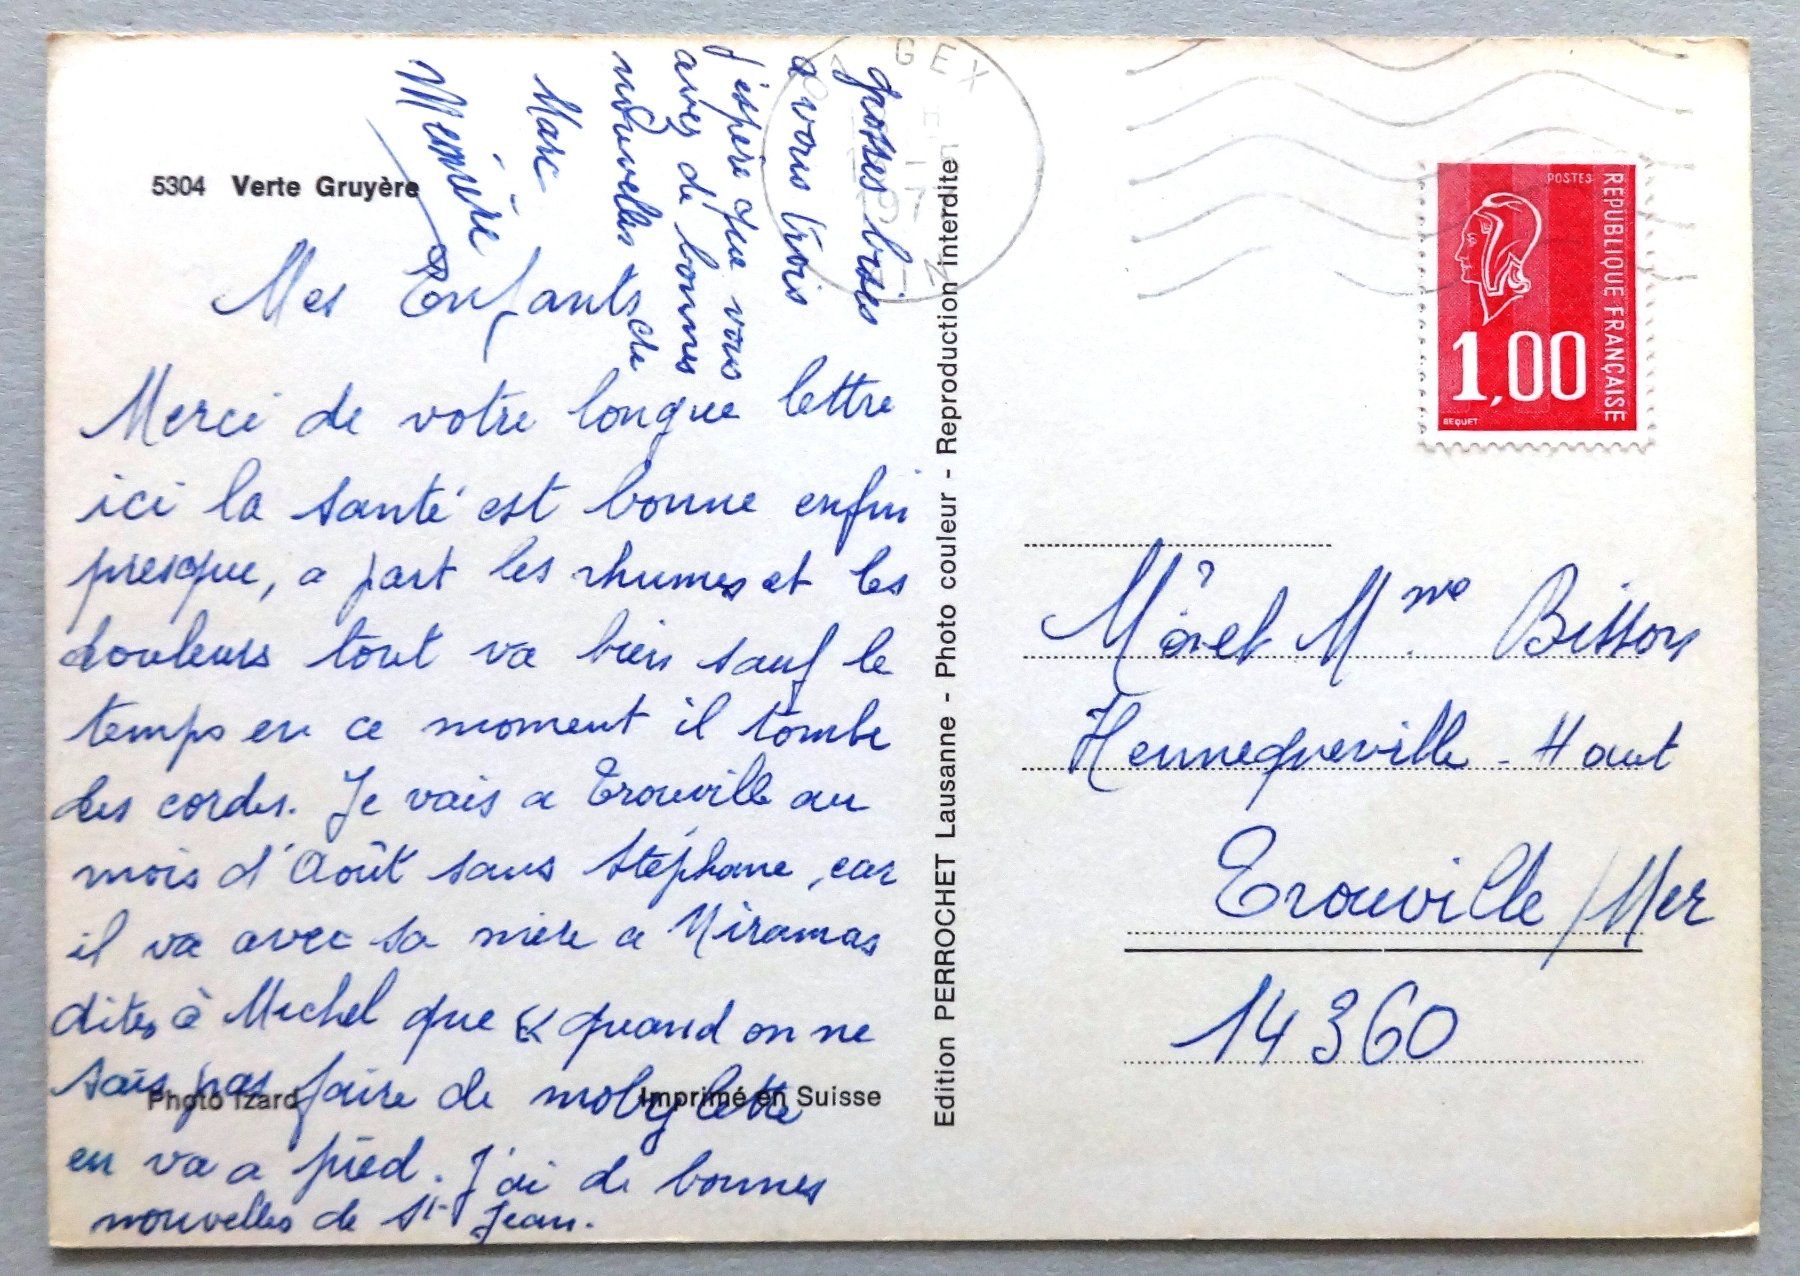 5304 Verte Gruyère
Mes Enfants
Merci de votre longue lettre
ici la santé est bonne enfin
presque, a part les rhumes et les
douleurs tout va bien sauf le
temps en ce moment il tombe
des cordes. Je vais a Trouville au
mois d'Août sans Stéphane, car
il va avec sa mère a Miramas
dites à Michel que quand on ne
sais pas faire de mobylette
en va a pied. J'ai de bonnes
nouvelles de St-Jean.
J'espère que vous
avez de bonnes
nouvelles de
Marc
grosses bises
a vous trois
Memère
Photo Izard
Imprimé en Suisse
Edition PERROCHET Lausanne - Photo couleur - Reproduction interdite
GEX
POSTES
REPUBLIQUE FRANÇAISE
1,00
BEQUET
Mr et Mme Bisson
Hennequeville - Haut
Trouville / Mer
14360